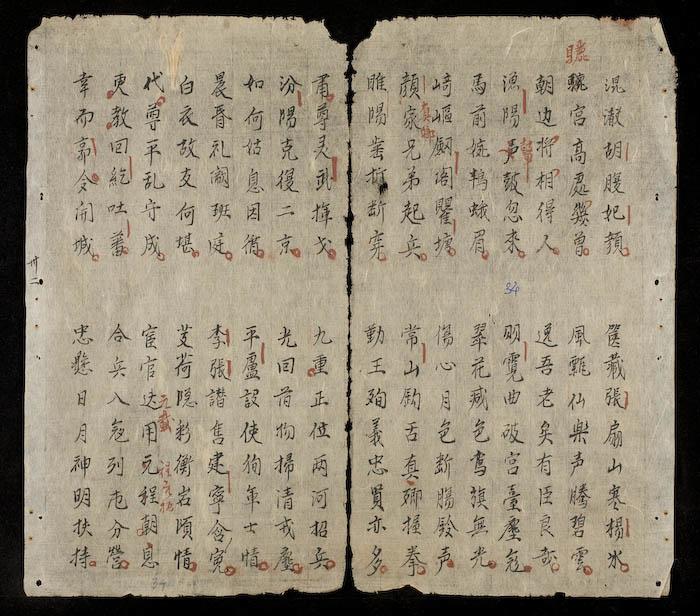 驪
混澈胡腹妃頟 篋藏張扇山寒楊氷
驪宮高處曾 風飄仙樂声騰碧雲
朝边將相得人 逸吾老矣有臣良哉
漁陽鼓忽來 明霓曲破宮臺塵氛
馬前婉轉蛾眉 翠花色旗無光
崎嶇劔閣瞿塘 傷心月色斷腸鈴声
真卿
顏家兄弟起兵 常山鉤舌真卿握拳
睢陽指断 勤王殉義忠貫亦多
34
甫尊灵武揮戈 九重正位两河招兵
汾陽克復二京 光回物掃清戎塵
如何姑息因循 平盧設使徇军士情
晨昏礼闕班庭 李張譖售建寧含冤
白衣故友何堪 芰荷隐衡岩順情
元載
代尊平乱守成 宦官迭用元程朝息
更教回紇吐蕃 合兵入寇列屯分營
幸而郭令開城 忠懸日月神明扶持
卅二
34